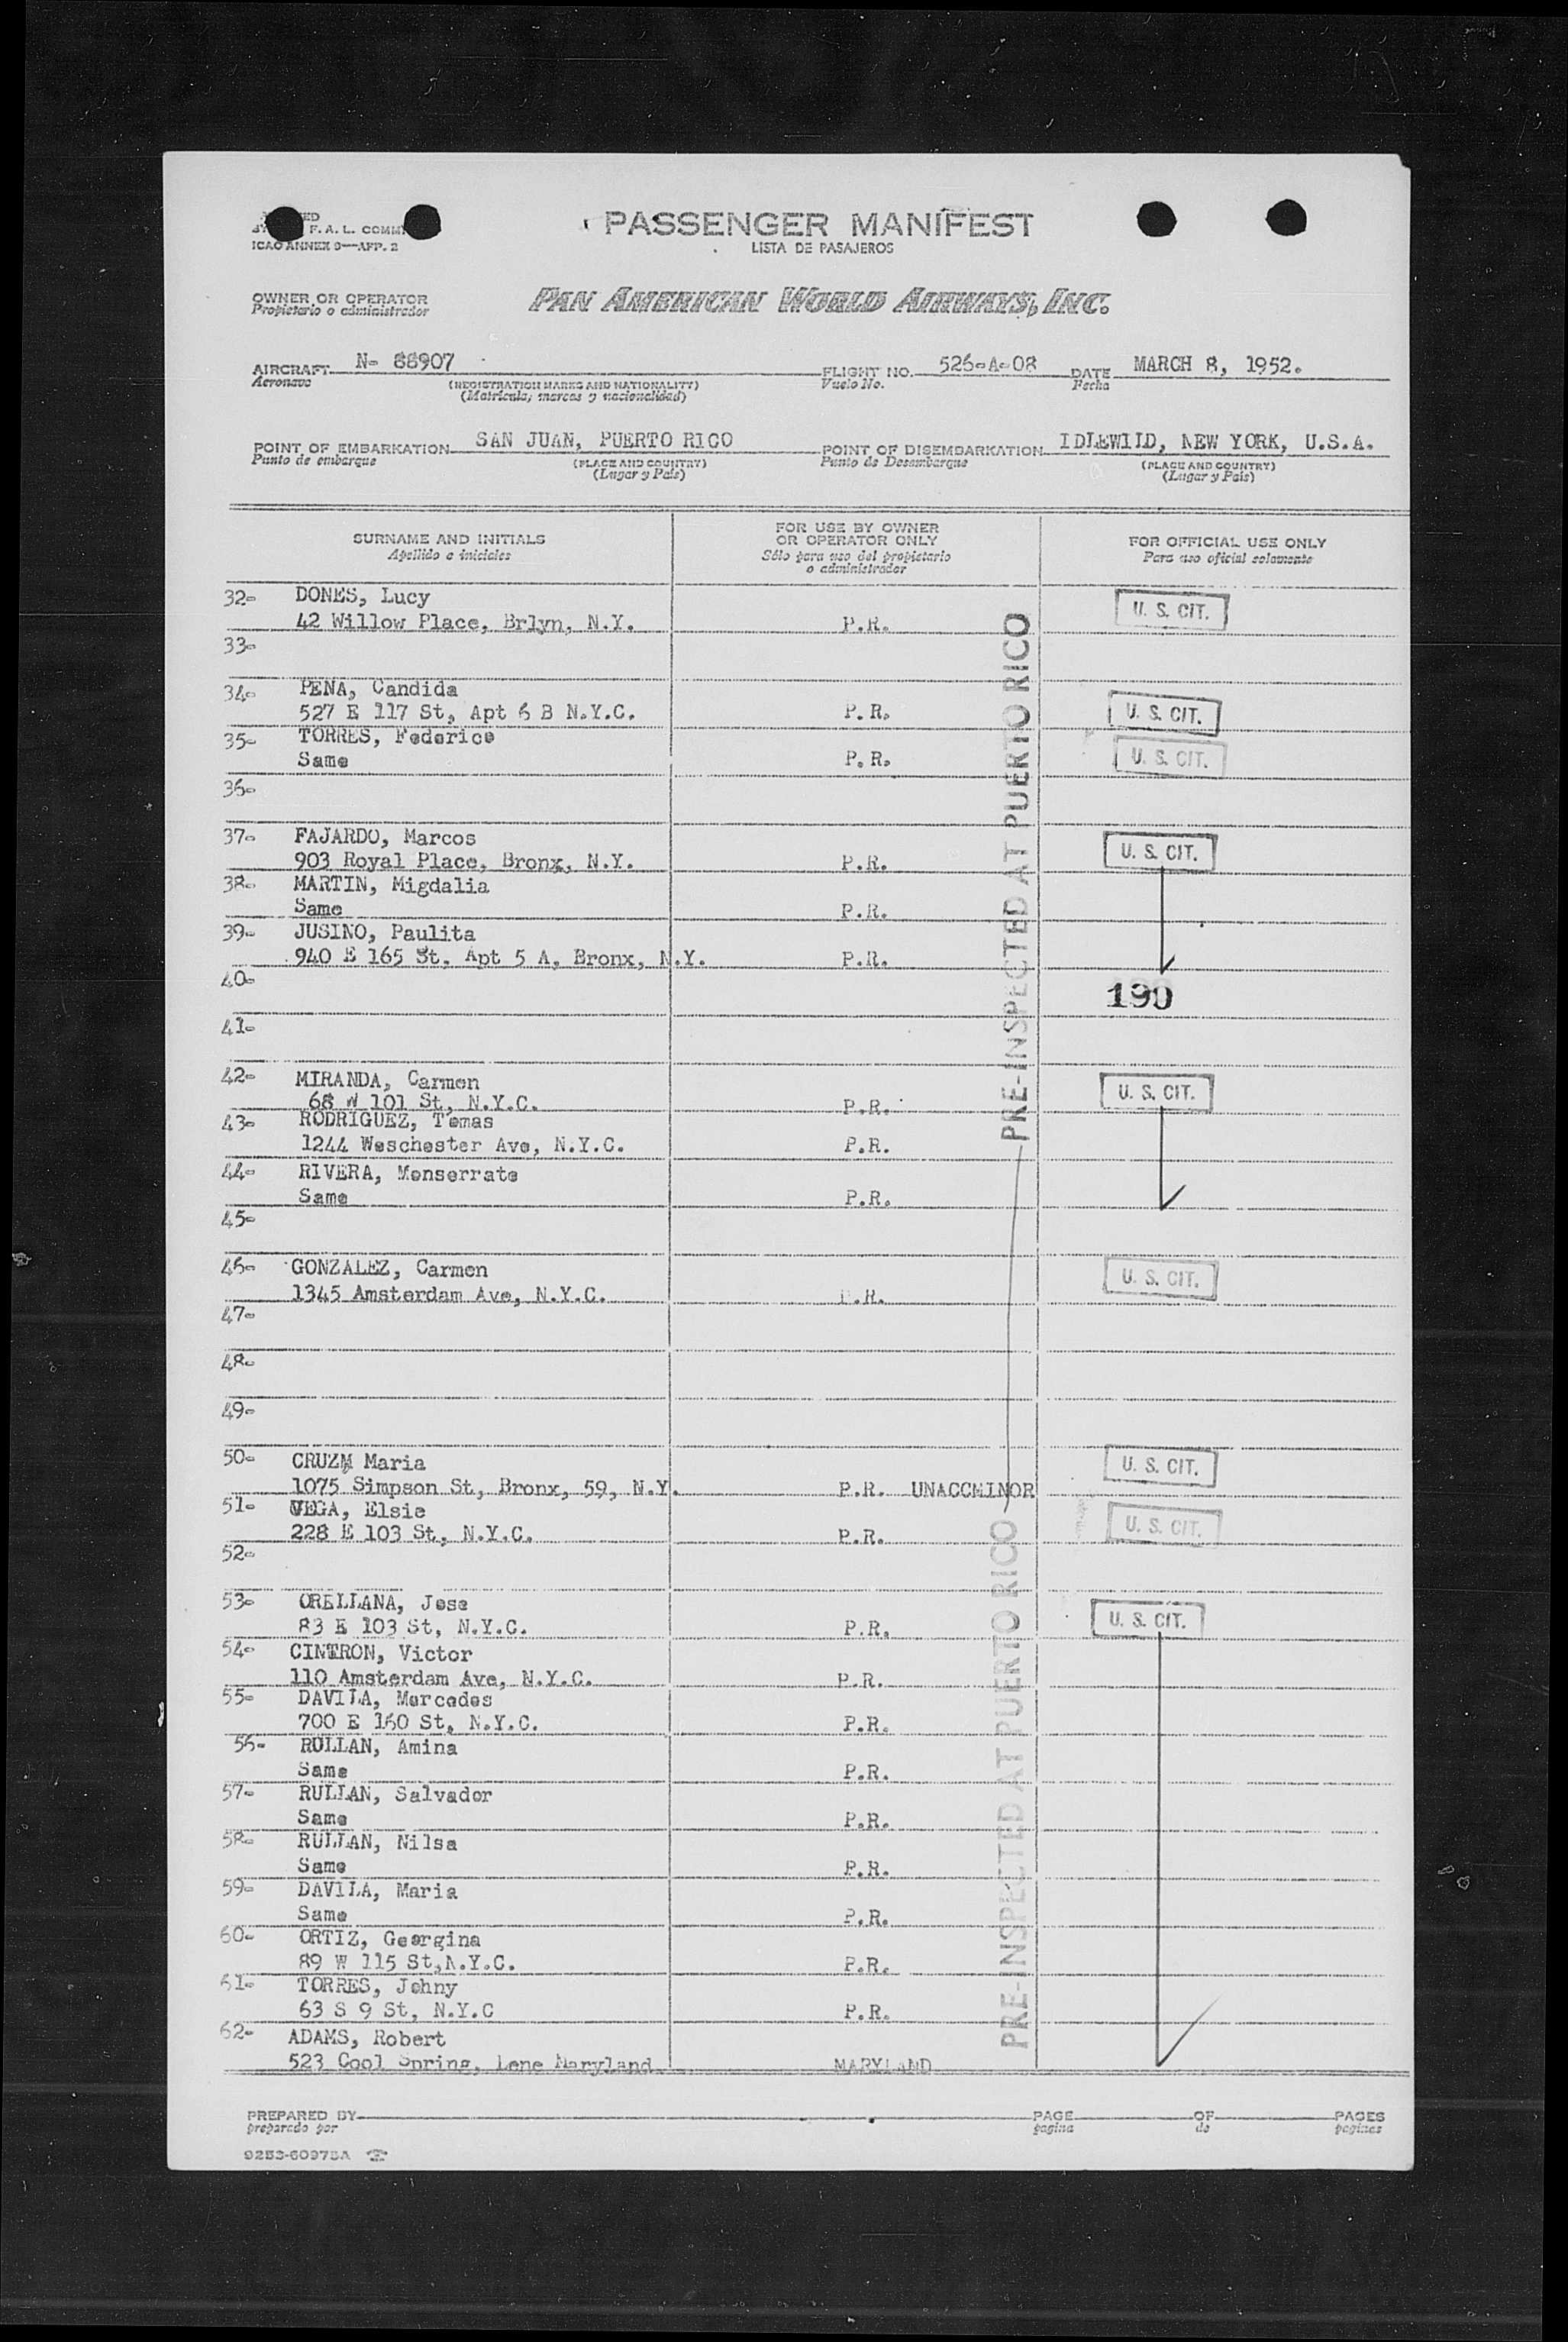 PASSENGER MANIFEST
LISTA DE PASAJEROS
F. A. L. COMM
ICAO ANNEX 9—APP. 2
OWNER OR OPERATOR
Propietario o administrador
PAN AMERICAN WORLD AIRWAYS, INC.
AIRCRAFT N- 88907 FLIGHT NO. 526-A-08 DATE MARCH 8, 1952.
Aeronave (REGISTRATION MARKS AND NATIONALITY) Vuelo No. Fecha
(Matricula, marcas y nacionalidad)
POINT OF EMBARKATION SAN JUAN, PUERTO RICO POINT OF DISEMBARKATION IDLEWILD, NEW YORK, U.S.A.
Punto de embarque (PLACE AND COUNTRY) Punto de Desembarque (PLACE AND COUNTRY)
(Lugar y País) (Lugar y País)
SURNAME AND INITIALS
Apellido e iniciales
FOR USE BY OWNER
OR OPERATOR ONLY
Sólo para uso del propietario
o administrador
FOR OFFICIAL USE ONLY
Para uso oficial solamente
32- DONES, Lucy U. S. CIT.
42 Willow Place, Brlyn, N.Y. P.R.
33-
34- PENA, Candida
527 E 117 St, Apt 6 B N.Y.C. P.R. U. S. CIT.
35- TORRES, Federico
Same P.R. U. S. CIT.
36-
37- FAJARDO, Marcos U. S. CIT.
903 Royal Place, Bronx, N.Y. P.R.
38- MARTIN, Migdalia
Same P.R.
39- JUSINO, Paulita
940 E 165 St, Apt 5 A, Bronx, N.Y. P.R.
40- 190
41-
42- MIRANDA, Carmen U. S. CIT.
68 W 101 St, N.Y.C. P.R.
43- RODRIGUEZ, Tomas
1244 Weschester Ave, N.Y.C. P.R.
44- RIVERA, Monserrate
Same P.R.
45-
46- GONZALEZ, Carmen U. S. CIT.
1345 Amsterdam Ave, N.Y.C. P.R.
47-
48-
49-
50- CRUZM Maria U. S. CIT.
1075 Simpson St, Bronx, 59, N.Y. P.R. UNACCMINOR
51- VEGA, Elsie U. S. CIT.
228 E 103 St, N.Y.C. P.R.
52-
53- ORELLANA, Jose U. S. CIT.
83 E 103 St, N.Y.C. P.R.
54- CINTRON, Victor
110 Amsterdam Ave, N.Y.C. P.R.
55- DAVILA, Mercedes
700 E 160 St, N.Y.C. P.R.
56- RULLAN, Amina
Same P.R.
57- RULLAN, Salvador
Same P.R.
58- RULLAN, Nilsa
Same P.R.
59- DAVILA, Maria
Same P.R.
60- ORTIZ, Georgina
89 W 115 St,N.Y.C. P.R.
61- TORRES, Johny
63 S 9 St, N.Y.C P.R.
62- ADAMS, Robert
523 Cool Spring, Lene Maryland MARYLAND
PRE-INSPECTED AT PUERTO RICO
PRE-INSPECTED AT PUERTO RICO
PREPARED BY PAGE OF PAGES
preparado por pagina de paginas
9253-60975A